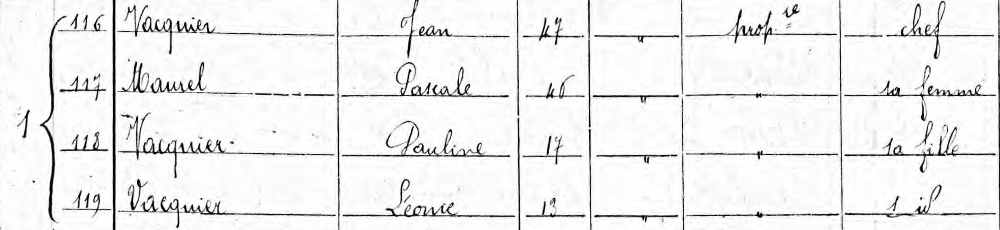 116 Vacquier Jean 47 " prop.re chef
117 Maurel Pascale 46 " " sa femme
1 118 Vacquier Pauline 17 " " sa fille
119 Vacquier Léonie 13 " " " id